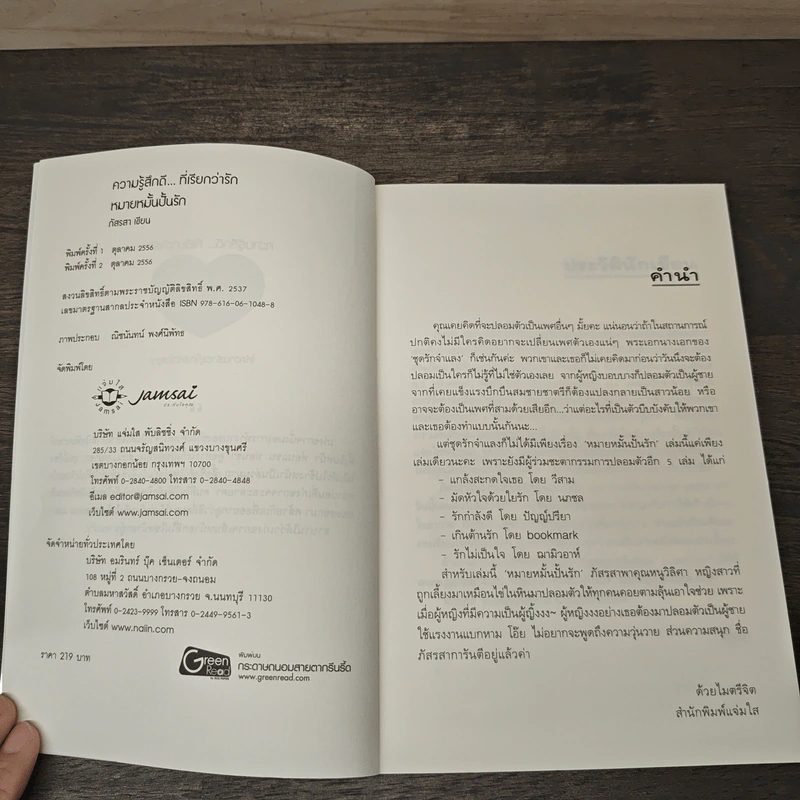 ความรู้สึกดี... ที่เรียกว่ารัก
หมายหมั้นปั้นรัก
ภัสรสา เขียน
พิมพ์ครั้งที่ 1 ตุลาคม 2556
พิมพ์ครั้งที่ 2 ตุลาคม 2556
สงวนลิขสิทธิ์ตามพระราชบัญญัติลิขสิทธิ์ พ.ศ. 2537
เลขมาตรฐานสากลประจำหนังสือ ISBN 978-616-06-1048-8
ภาพประกอบ ณิชนันทน์ พงศ์นิพัทธ
จัดพิมพ์โดย
แจ่มใส
jamsai
jamsai
บริษัท แจ่มใส พับลิชชิ่ง จำกัด
285/33 ถนนจรัญสนิทวงศ์ แขวงบางขุนศรี
เขตบางกอกน้อย กรุงเทพฯ 10700
โทรศัพท์ 0-2840-4800 โทรสาร 0-2840-4848
อีเมล editor@jamsai.com
เว็บไซต์ www.jamsai.com
จัดจำหน่ายทั่วประเทศโดย
บริษัท อมรินทร์ บุ๊ค เซ็นเตอร์ จำกัด
108 หมู่ที่ 2 ถนนบางกรวย-จงถนอม
ตำบลมหาสวัสดิ์ อำเภอบางกรวย จ.นนทบุรี 11130
โทรศัพท์ 0-2423-9999 โทรสาร 0-2449-9561-3
เว็บไซต์ www.naiin.com
ราคา 219 บาท
Green Read
พิมพ์บน
กระดาษถนอมสายตากรีนรี้ด
www.greenread.com
คำนำ
คุณเคยคิดที่จะปลอมตัวเป็นเพศอื่นๆ มั้ยคะ แน่นอนว่าถ้าในสถานการณ์
ปกติคงไม่มีใครคิดอยากจะเปลี่ยนเพศตัวเองแน่ๆ พระเอกนางเอกของ
'ชุดรักจำแลง' ก็เช่นกันค่ะ พวกเขาและเธอก็ไม่เคยคิดมาก่อนว่าวันนึงจะต้อง
ปลอมเป็นใครก็ไม่รู้ที่ไม่ใช่ตัวเองเลย จากผู้หญิงบอบบางก็ปลอมตัวเป็นผู้ชาย
จากที่เคยแข็งแรงบึกบึนสมชายชาตรีก็ต้องแปลงกลายเป็นสาวน้อย หรือ
อาจจะต้องเป็นเพศที่สามด้วยเสียอีก...ว่าแต่อะไรที่เป็นตัวบีบบังคับให้พวกเขา
และเธอต้องทำแบบนั้นกันนะ...
แต่ชุดรักจำแลงก็ไม่ได้มีเพียงเรื่อง 'หมายหมั้นปั้นรัก' เล่มนี้แค่เพียง
เล่มเดียวนะคะ เพราะยังมีผู้ร่วมชะตากรรมการปลอมตัวอีก 5 เล่ม ได้แก่
- แกล้งสะกดใจเธอ โดย วีสาม
- มัดหัวใจด้วยใยรัก โดย นภชล
- รักกำลังดี โดย ปัญญ์ปรียา
- เกินต้านรัก โดย bookmark
- รักไม่เป็นใจ โดย ฌามิวอาห์
สำหรับเล่มนี้ 'หมายหมั้นปั้นรัก' ภัสรสาพาคุณหนูวิลิศา หญิงสาวที่
ถูกเลี้ยงมาเหมือนไข่ในหินมาปลอมตัวให้ทุกคนคอยตามลุ้นเอาใจช่วย เพราะ
เมื่อผู้หญิงที่มีความเป็นผู้ญิ้งงง~ ผู้หญิงงงอย่างเธอต้องมาปลอมตัวเป็นผู้ชาย
ใช้แรงงานแบกหาม โอ๊ย ไม่อยากจะพูดถึงความวุ่นวาย ส่วนความสนุก ชื่อ
ภัสรสาการันตีอยู่แล้วค่า
ด้วยไมตรีจิต
สำนักพิมพ์แจ่มใส